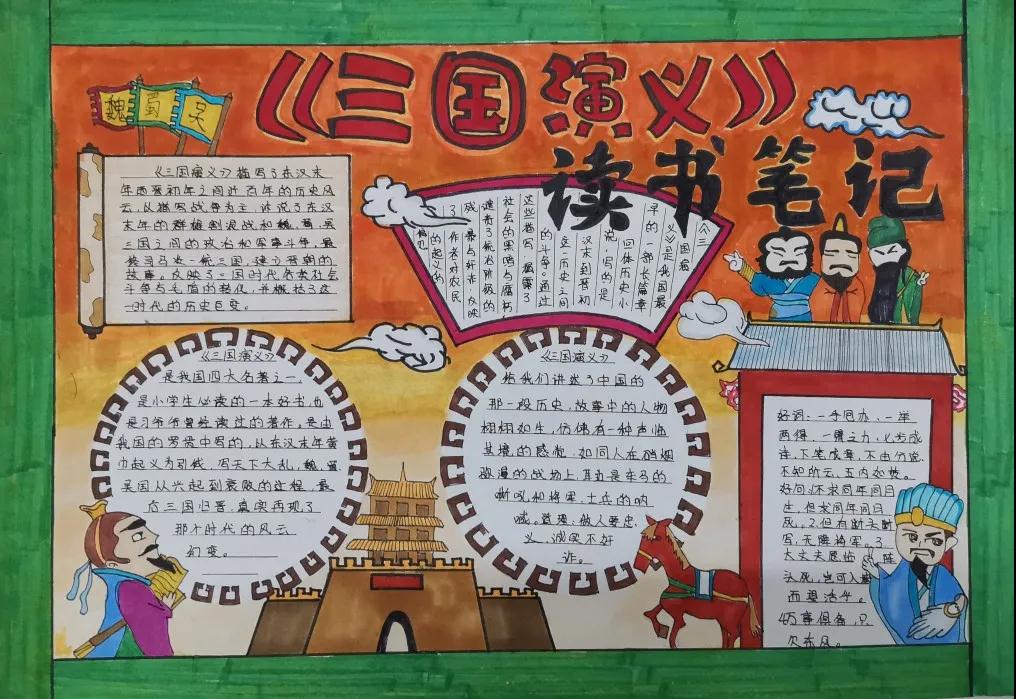 《三国演义》
读书笔记
魏
蜀
吴
《三国演义》描写了东汉末
年西晋初年之间近百年的历史风
云，以描写战争为主，诉说了东汉
末年的群雄割混战和魏，蜀，吴
三国之间的政治和军事斗争，最
终司马炎一统三国，建立晋朝的
故事。反映了三国时代各类社会
斗争与矛盾的转化，并概括了这
一时代的历史巨变。
《三
国演
义》是我国最
早的一部长篇章
回体历史小
说，写的是
汉末到晋初
这一历史之间
的斗争。通过
这些描写，揭露了
社会的黑暗与腐朽
谴责了统治阶级的
残暴与奸诈，反映
了作者对农民
的起义的
《三国演义》
是我国四大名著之一，
是小学生必读的一本好书，也
是习爷爷曾经读过的著作。是由
我国的罗贯中写的，从东汉末年黄
巾起义为引线，写天下大乱，魏，蜀，
吴国从兴起到衰败的过程，最
后三国归晋，真实再现了
那个时代的风云
幻变。
《三国演义》
给我们讲述了中国的
那一段历史，故事中的人物
栩栩如生，仿佛有一种声临
其境的感觉，如同人在硝烟
弥漫的战场上，耳边是车马的
嘶吼和将军，士兵的呐
喊。道理：做人要忠，
义，诚实不奸
诈。
好词：一手同办，一举
两得，一臂之力，七步成
诗，下笔成章，不由分说，
不知所云，五内如焚。
好句：1.不求同年同日
生，但求同年同日
死。2.但有断头
无降将军。3.
大丈夫愿临阵
头死，岂可入
而望活乎。
4.万事俱备，只
欠东风。